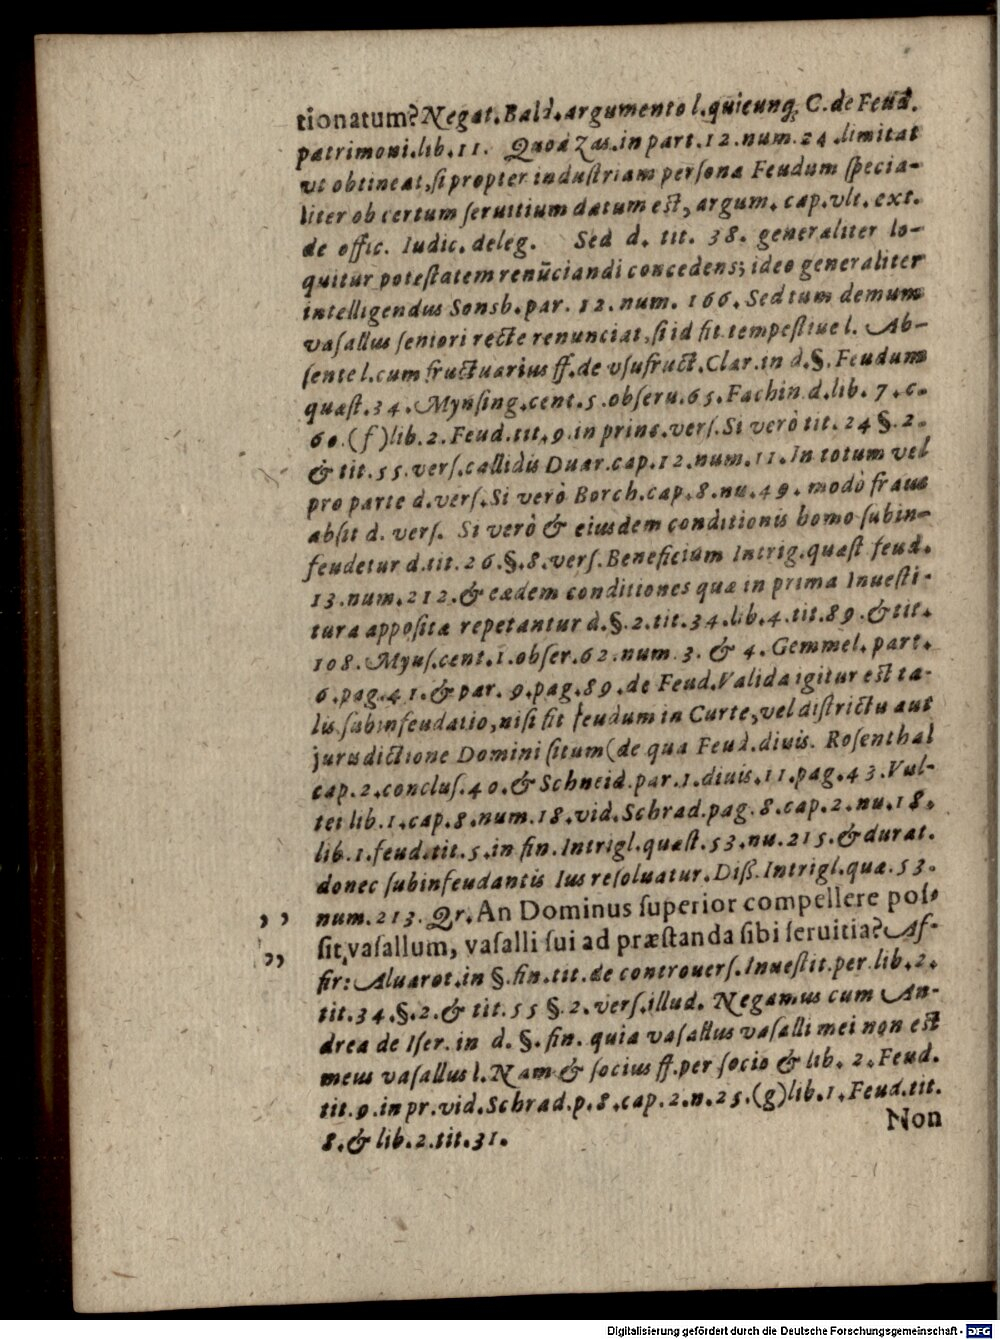 tionatum? Negat. Bald. argumento l. quicunq; C. de Feud.
patrimoni. lib. 11. Quod Zas. in part. 12. num. 24. limitat
vt obtineat, si propter industriam persona Feudum specia-
liter ob certum seruitium datum est, argum. cap. vlt. ext.
de offic. Iudic. deleg. Sed d. tit. 38. generaliter lo-
quitur potestatem renūciandi concedens; ideo generaliter
intelligendus Sonsb. par. 12. num. 166. Sed tum demum
vasallus seniori recte renunciat, si id fit tempestiue l. Ab-
sente l. cum fructuarius ff. de vsufruct. Clar. in d. §. Feudum
quæst. 34. Mynsing. cent. 5. obseru. 65. Fachin. d. lib. 7. c.
60. (f) lib. 2. Feud. tit. 9. in princ. vers. Si verò tit. 24 §. 2.
& tit. 55. vers. callidis Duar. cap. 12. num. 11. In totum vel
pro parte d. vers. Si verò Borch. cap. 8. nu. 49. modò fraus
absit d. vers. Si verò & eiusdem conditionis homo subin-
feudetur d. tit. 26. §. 8. vers. Beneficium Intrig. quæst feud.
13. num. 212. & eædem conditiones quæ in prima Inuesti-
tura apposita repetantur d. §. 2. tit. 34. lib. 4. tit. 89. & tit.
108. Myns. cent. 1. obser. 62. num. 3. & 4. Gemmel. part.
6. pag. 41. & par. 9. pag. 89. de Feud. Valida igitur est ta-
lis subinfeudatio, nisi sit feudum in Curte, vel districtu aut
jurisdictione Domini situm (de qua Feud. diuis. Rosenthal
cap. 2. conclus. 40. & Schneid. par. 1. diuis. 11. pag. 43. Vul-
tei lib. 1. cap. 8. num. 18. vid. Schrad. pag. 8. cap. 2. nu. 18.
lib. 1. feud. tit. 5. in fin. Intrigl. quæst. 53. nu. 215. & durat.
donec subinfeudantis Ius resoluatur. Diß. Intrigl. quæ. 53.
,, num. 213. Qr. An Dominus superior compellere pos-
,, sit, vasallum, vasalli sui ad præstanda sibi seruitia? Af-
fir: Aluarot. in §. fin. tit. de controuers. Inuestit. per lib. 2.
tit. 34. §. 2. & tit. 55 §. 2. vers. illud. Negamus cum An-
drea de Iser. in d. §. fin. quia vasallus vasalli mei non est
meus vasallus l. Nam & socius ff. per socio & lib. 2. Feud.
tit. 9. in pr. vid. Schrad. p. 8. cap. 2. n. 25. (g) lib. 1. Feud. tit.
8. & lib. 2. tit. 31.
Non
Digitalisierung gefördert durch die Deutsche Forschungsgemeinschaft - DFG